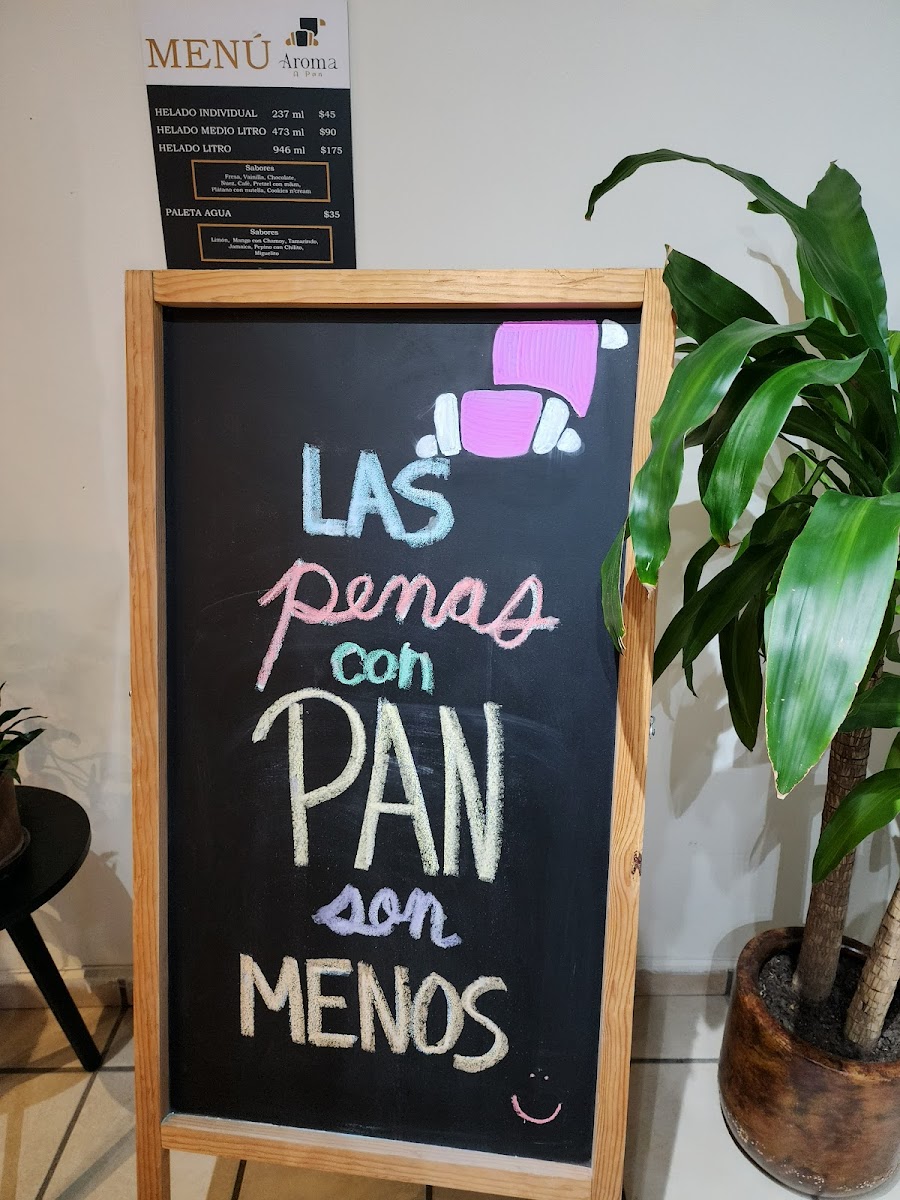 MENÚ
Aroma
A Pan
HELADO INDIVIDUAL 237 ml $45
HELADO MEDIO LITRO 473 ml $90
HELADO LITRO 946 ml $175
Sabores
Fresa, Vainilla, Chocolate,
Nuez, Café, Pretzel con m&m,
Plátano con nutella, Cookies n'cream
PALETA AGUA $35
Sabores
Limón, Mango con Chamoy, Tamarindo,
Jamaica, Pepino con Chilito,
Miguelito
LAS
penas
con
PAN
son
MENOS